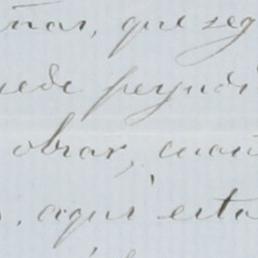 ñas, que seg
uede perjudi
obrar, cuan
, aqui esta